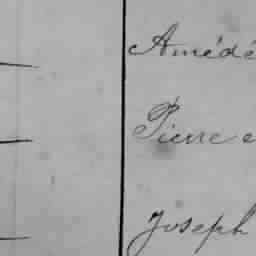 Amédé
Pierre e
Joseph